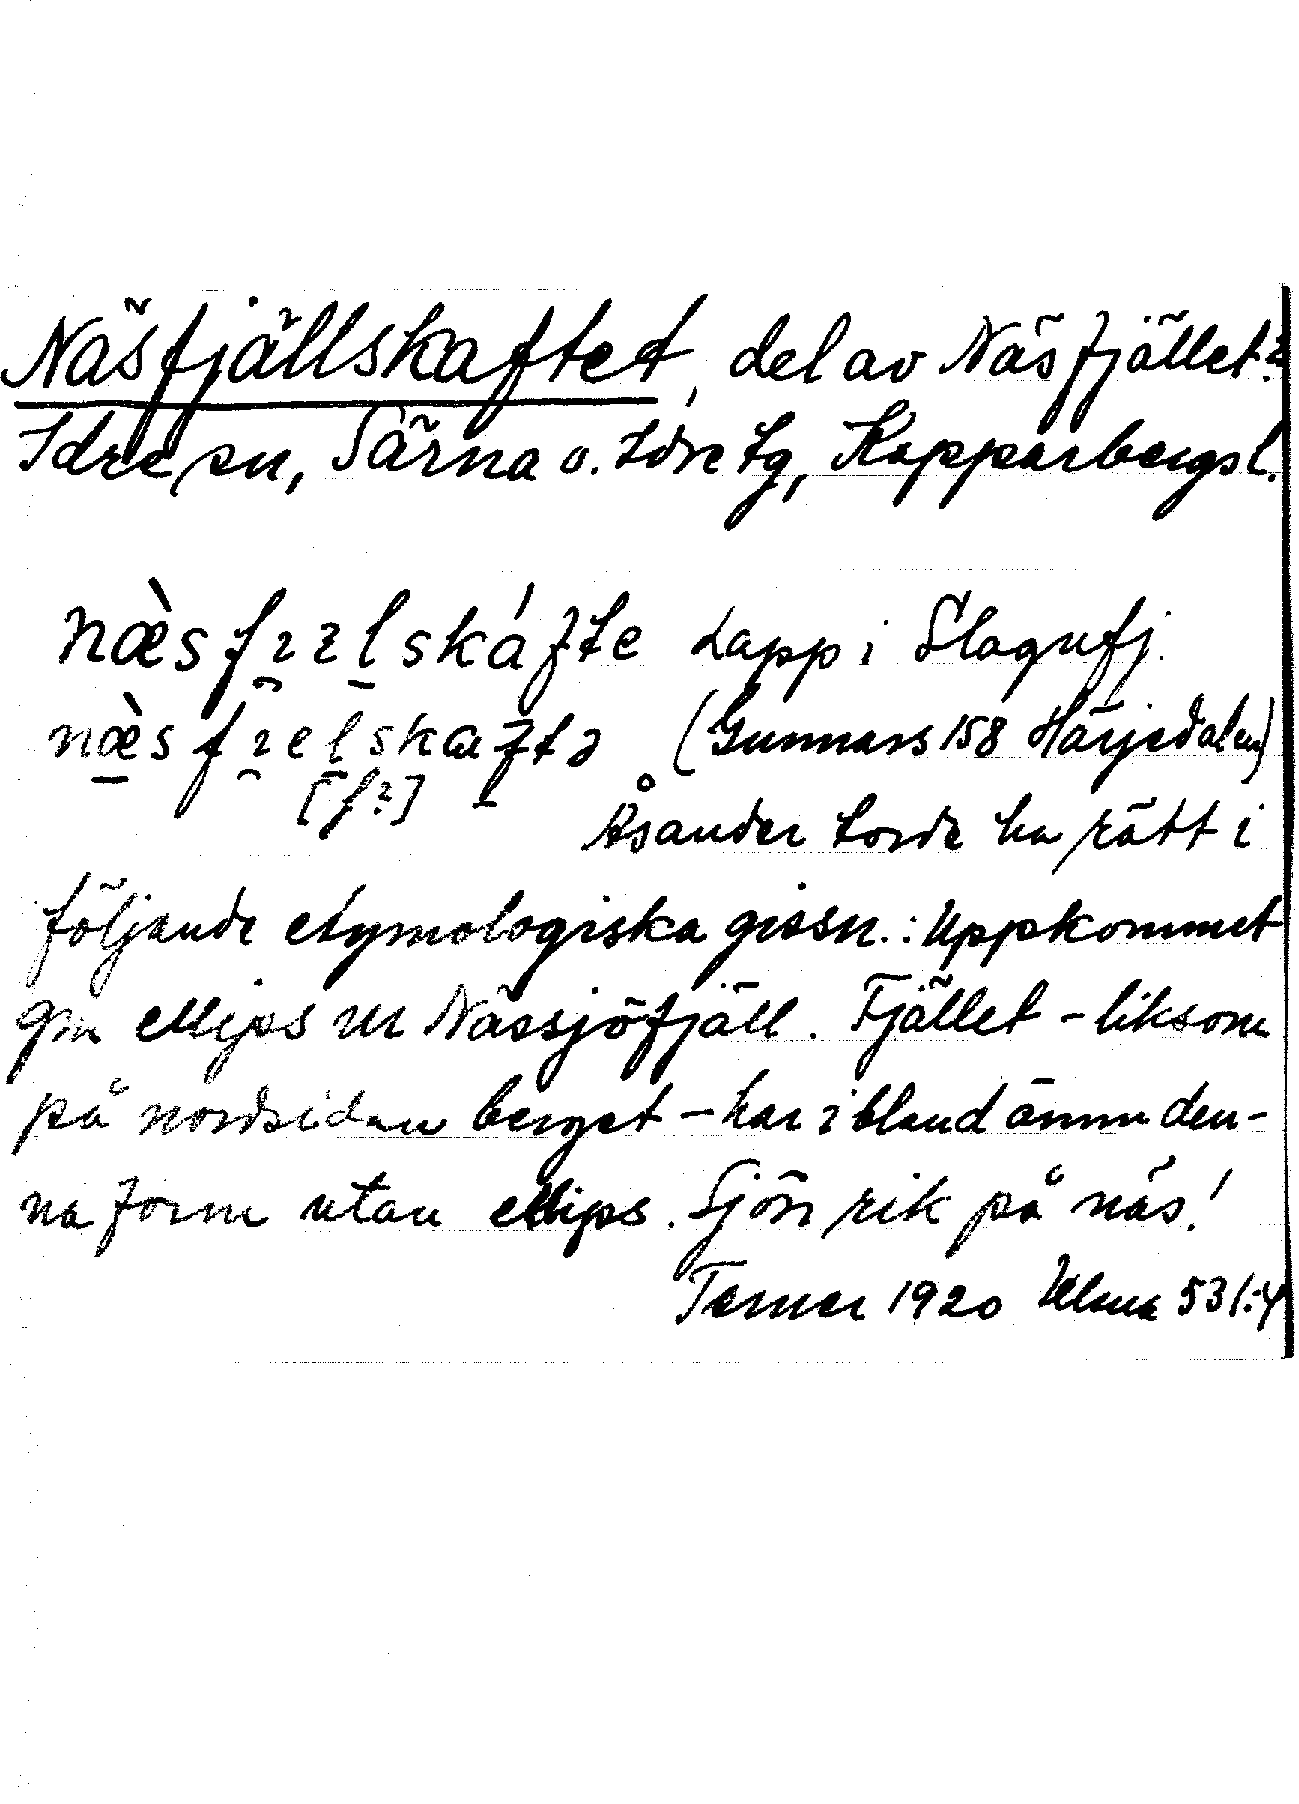 Näsfjällskaftet, del av Näsfjället?
Idre sn, Särna o. Idre tg, Kopparbergs l.
næ̀sfɪɪlskáfte Lapp i Slagufj.
næ̀sfɪelskaftə (Gunnars 158 Härjedalen)
[f?]
Åsander torde ha rätt i
följande etymologiska gissn.: Uppkommet
gm ellips ur Nässjöfjäll. Fjället - liksom
på nordsidan berget - har ibland ännu den-
na form utan ellips. Sjön rik på näs!
Tarner 1920 Ulma 531:4